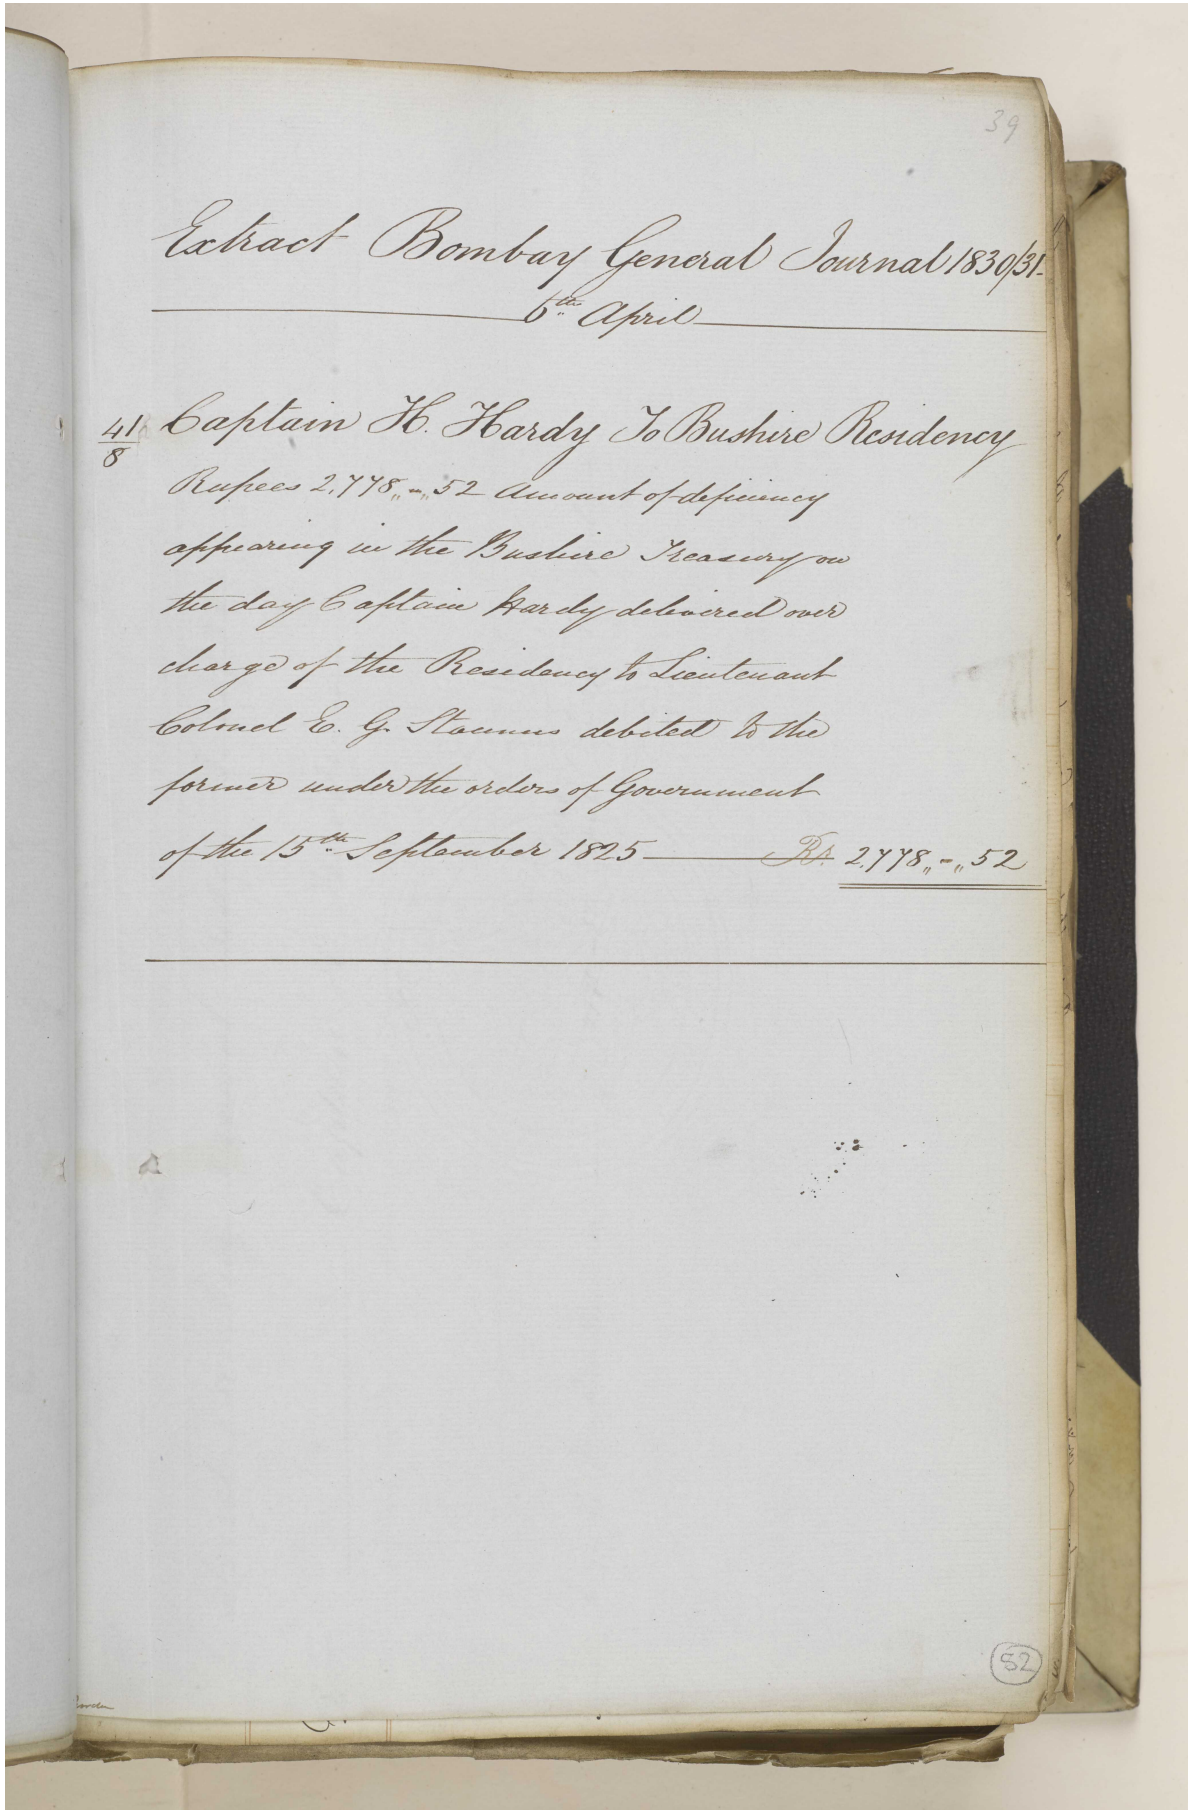 39
Extract Bombay General Journal 1830/31-
6th April
41/8 Captain H. Hardy To Bushire Residency
Rupees 2,778,,-,,52 Amount of deficiency
appearing in the Bushire Treasury on
the day Captain Hardy delivered over
charge of the Residency to Lieutenant
Colonel E. G. Stannus debited to the
former under the orders of Government
of the 15th September 1825 Rs. 2,778,,-,,52
52